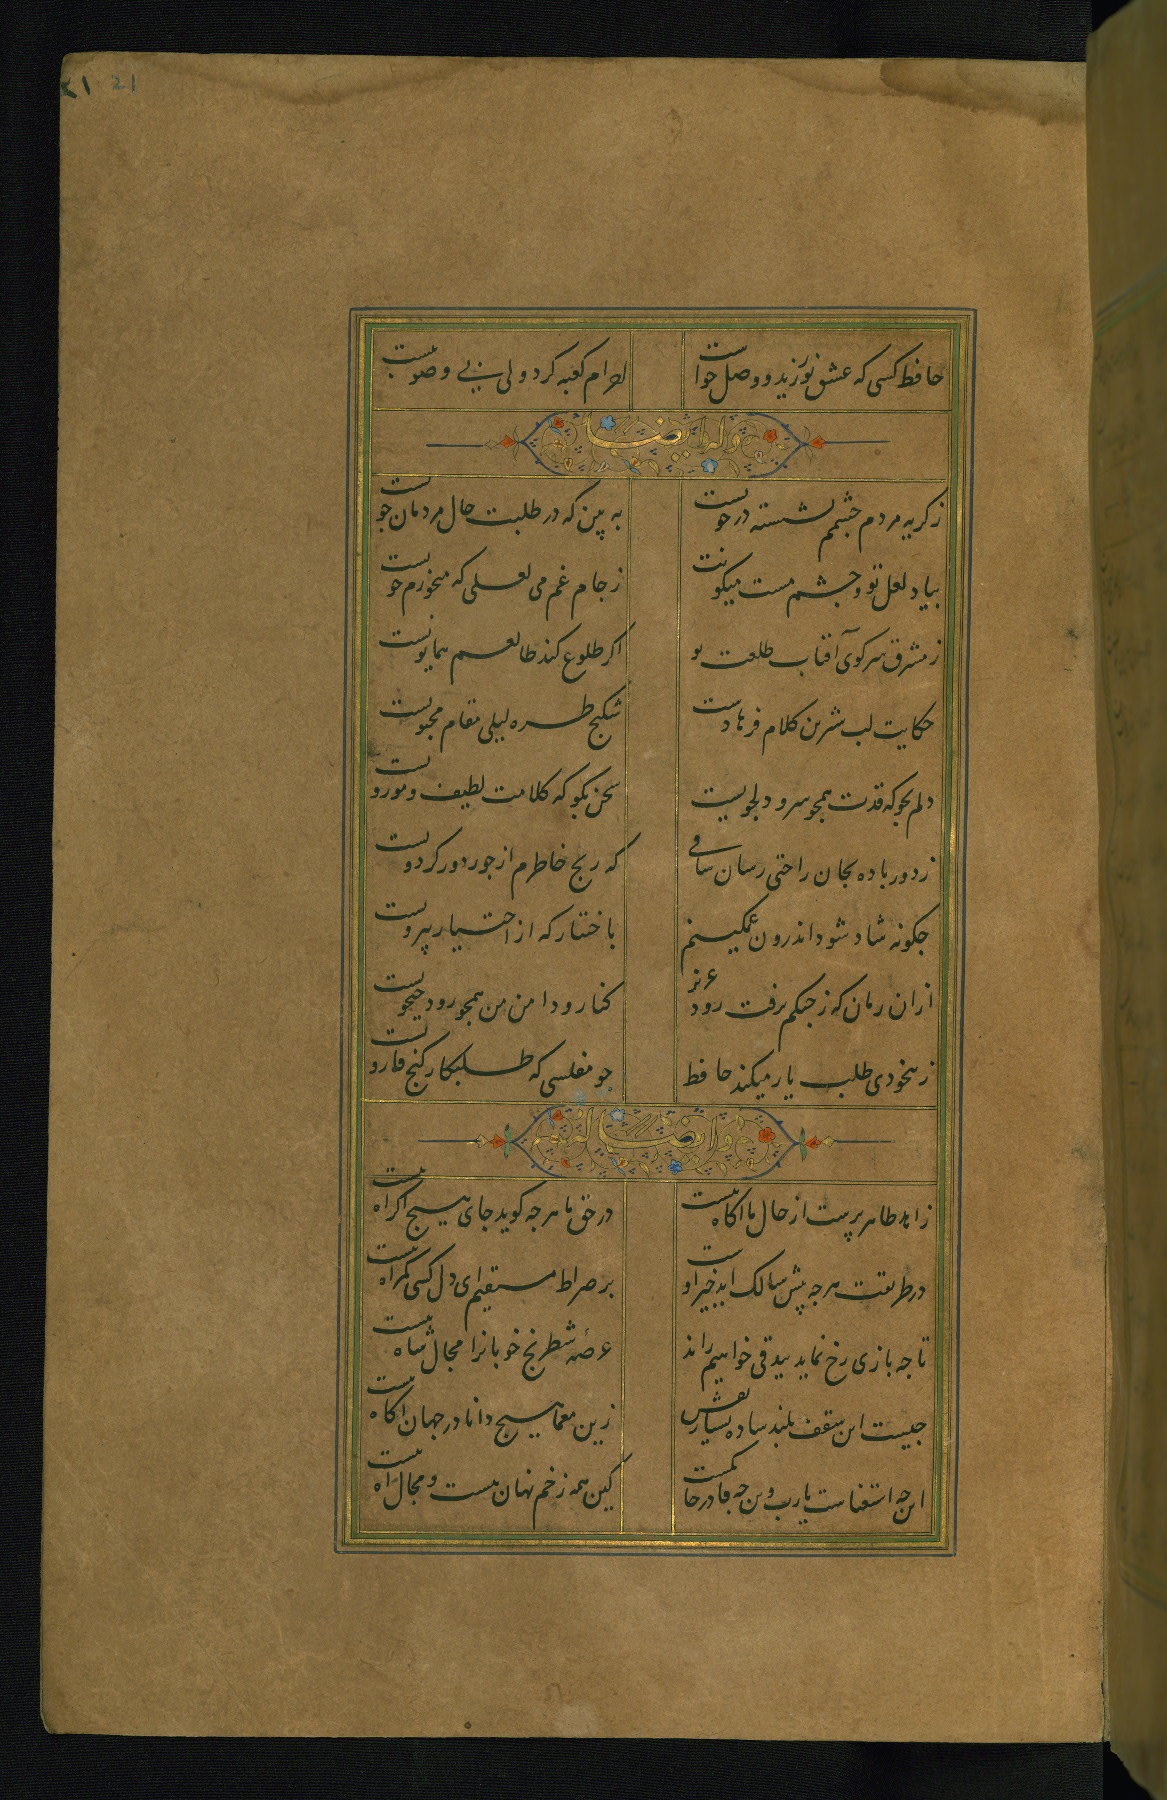 ٢١ 21
حافظ کسی که عشق نورزید و وصل خواست
احرام کعبه کرد ولی بی وضو ببست
وله ایضا
ز گریه مردم چشمم نشسته در خونست
به بین که در طلبت حال مردمان چونست
بیاد لعل تو و چشم مست میکونت
ز جام غم می لعلی که میخورم خونست
ز مشرق سر کوی آفتاب طلعت تو
اکر طلوع کند طالعم همایونست
حکایت لب شیرین کلام فرهادست
شکنج طره لیلی مقام مجنونست
دلم بجو که قدت همچو سرو دلجویست
سخن بکو که کلامت لطیف و موزونست
ز دور باده بجان راحتی رسان ساقی
که رنج خاطرم از جور دور کردونست
جکونه شاد شود اندرون غمکینم
باختیار که از اختیار بیرونست
از ان زمان که ز چنکم برفت رود عزیز
کنار رود امن من همجو رود جیحونست
ز بیخودی طلب یار میکند حافظ
جو مفلسی که طلبکار کنج قارونست
وله ایضا
زاهد ظاهر پرست از حال ما اکاه نیست
در حق ما هرجه کوید جای هیچ اکراه نیست
در طریقت هرجه پیش سالک اید خیر اوست
بر صراط مستقیم ای دل کسی کمراه نیست
تا جه بازی رخ نماید بیدقی خواهیم راند
عرصه شطرنج خوبانرا مجال شاه نیست
جیست این سقف بلند ساده بسیار نقش
زین معما هیچ دانا در جهان اکاه نیست
این جه استغناست یارب وین جه قادر حاکمست
کین همه زخم نهان هست و مجال اه نیست